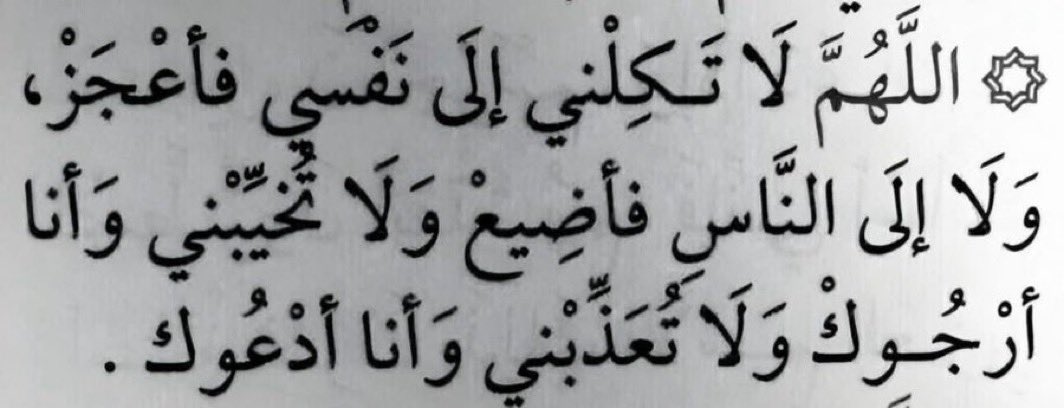 ۞ اللَّهُمَّ لَا تَـكِلْني إلَى نَفْسي فأعْجَزْ،
وَلَا إلَى النَّاسِ فأضِيعْ وَلَا تُخيِّبْني وَأنا
أرْجُـوكْ وَلَا تُعَذِّبْني وَأنا أدْعُوك .